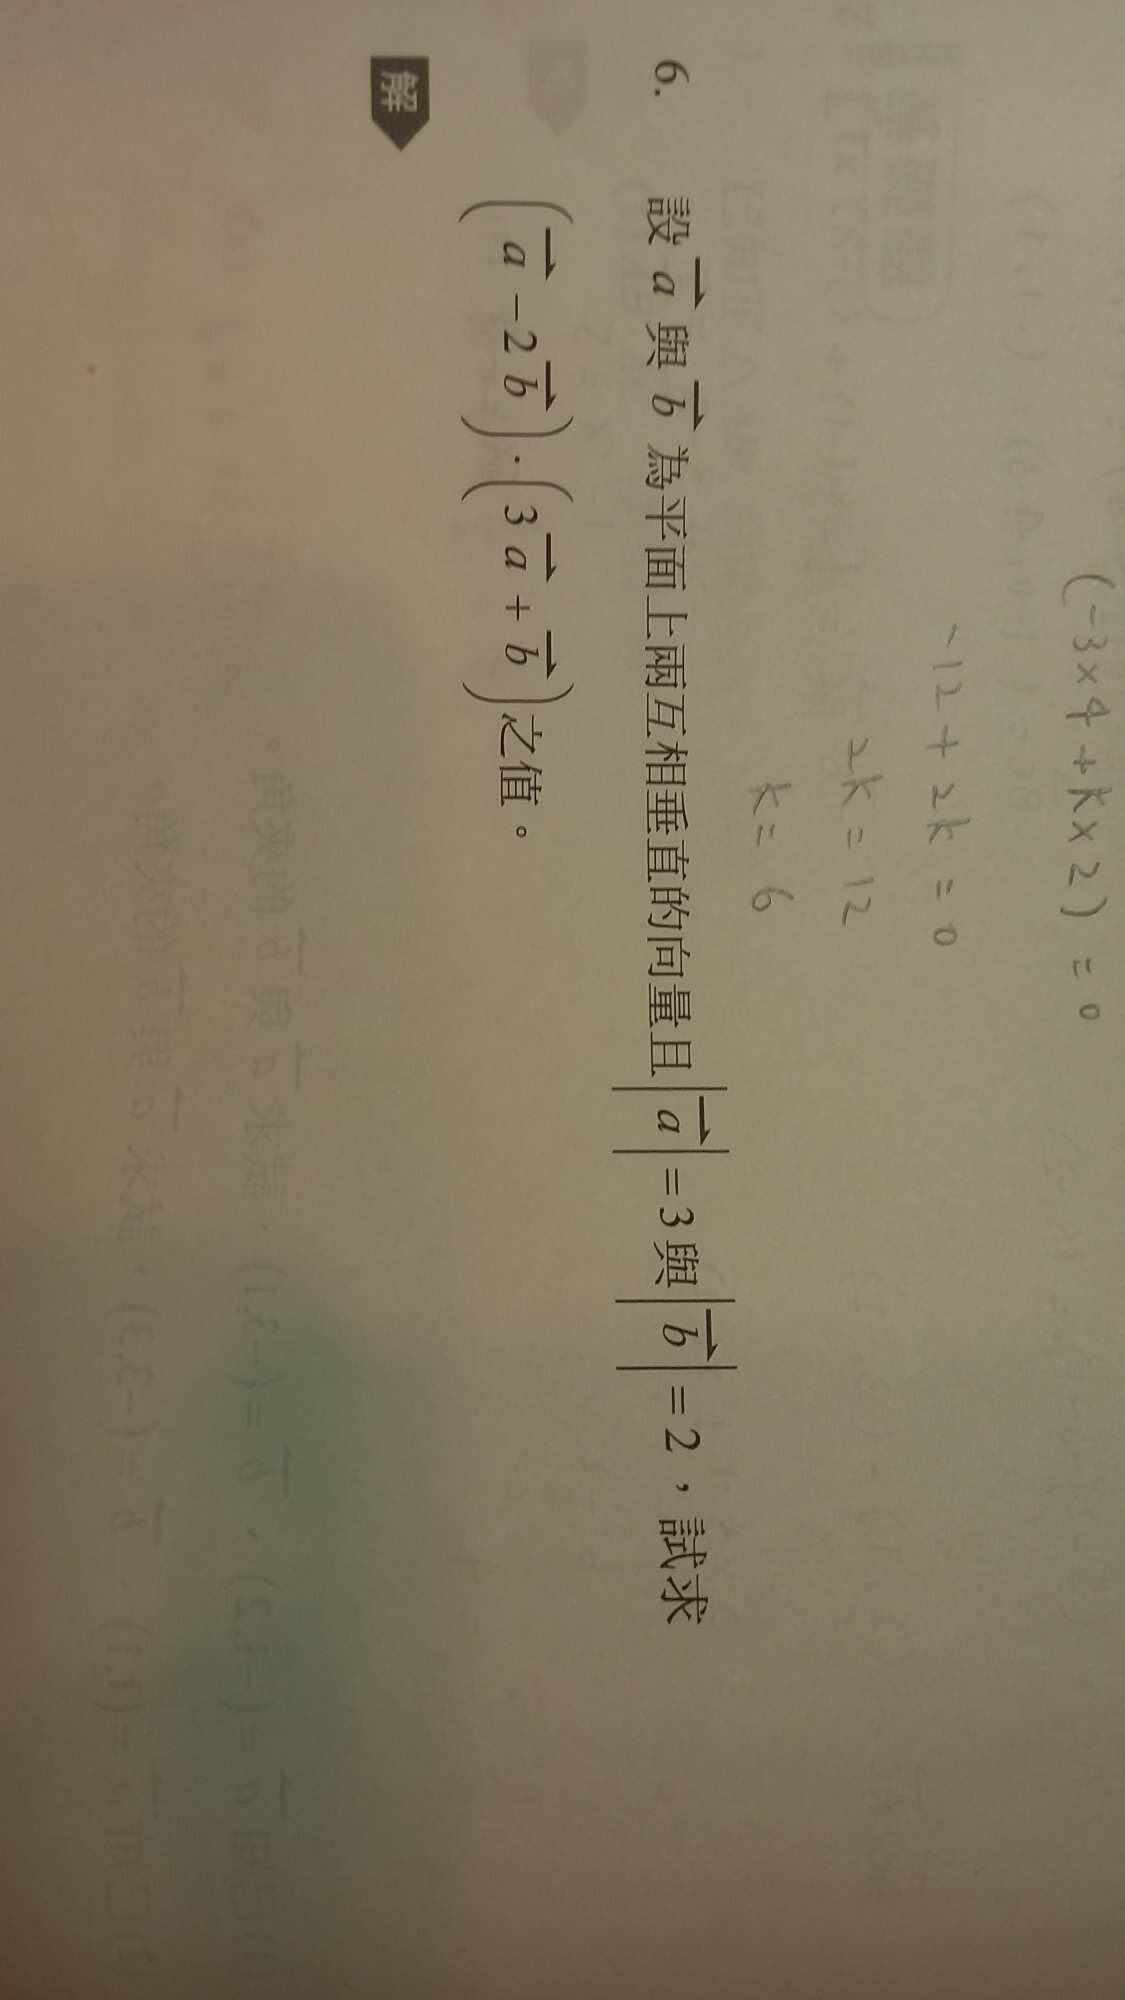 (-3×4+k×2)=0
-12+2k=0
2k=12
k=6
6. 設 a 與 b 為平面上兩互相垂直的向量且|a|=3與|b|=2，試求
(a-2b)·(3a+b)之值。
解